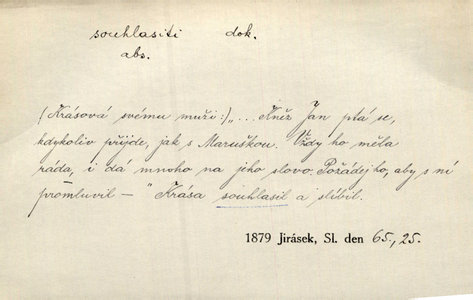 souhlasiti dok.
abs.
(Krásová svému muži:) „... Kněz Jan ptá se,
kdykoliv přijde, jak s Maruškou. Vždy ho měla
ráda, i dá mnoho na jeho slovo. Požádej ho, aby s ní
promluvil – " Krása souhlasil a slíbil.
1879 Jirásek, Sl. den 65, 25.